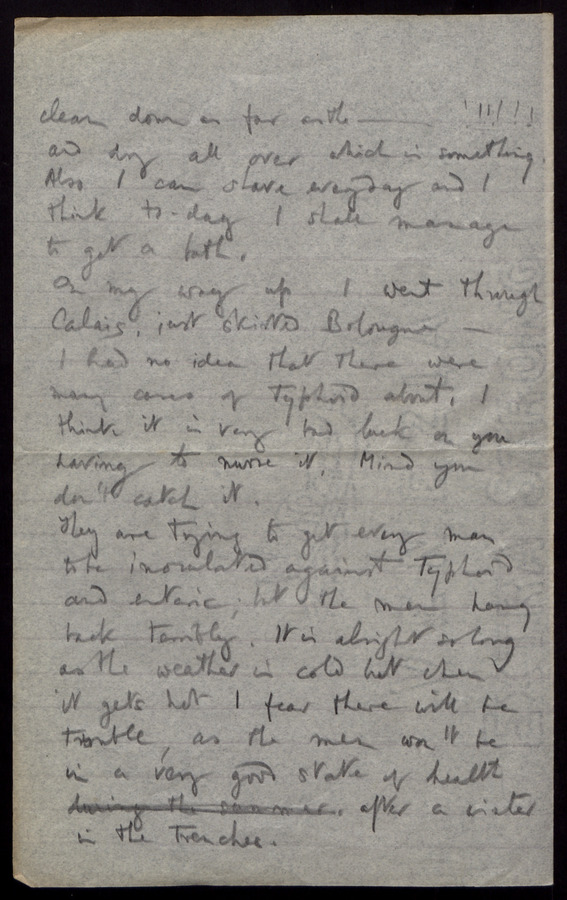 clean down as far as the —— '!!/!!
and dry all over which is something.
Also I can shave everyday and I
think to-day I shall manage
to get a bath.
On my way up I went through
Calais, just skirted Bolougne —
I had no idea that there were
many cases of Typhoid about, I
think it is very bad luck on you
having to nurse it, Mind you
don't catch it.
They are trying to get every man
to be inoculated against Typhoid
and enteric; but the men hang
back terribly. It is alright so long
as the weather is cold but when
it gets hot I fear there will be
trouble, as the men won't be
in a very good state of health
during the summer. after a winter
in the Trenches.